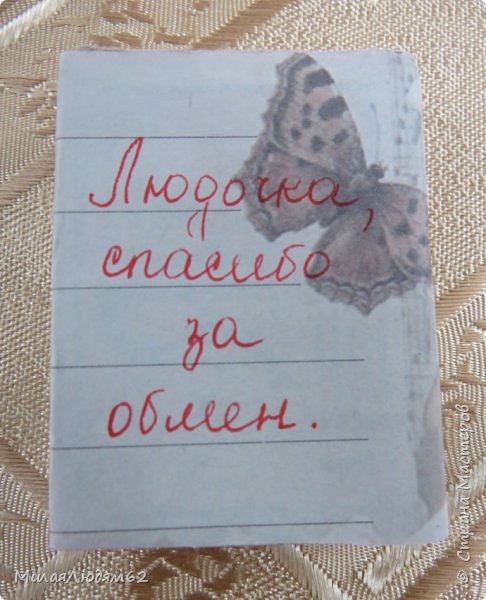 Людочка,
спасибо
за
обмен.
МилаяЛюдям62
© Страна Мастеров